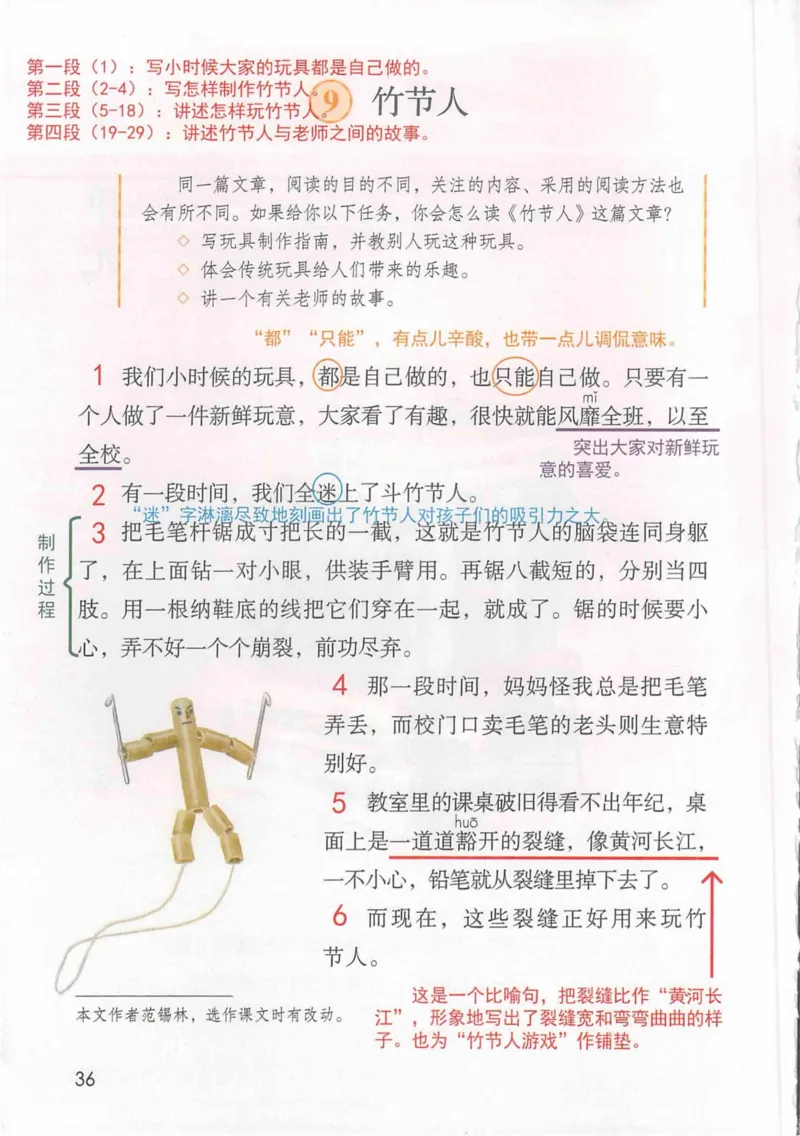 第一段（1）：写小时候大家的玩具都是自己做的。
第二段（2-4）：写怎样制作竹节人。
第三段（5-18）：讲述怎样玩竹节人。
第四段（19-29）：讲述竹节人与老师之间的故事。
9 竹节人
同一篇文章，阅读的目的不同，关注的内容、采用的阅读方法也
会有所不同。如果给你以下任务，你会怎么读《竹节人》这篇文章？
◇ 写玩具制作指南，并教别人玩这种玩具。
◇ 体会传统玩具给人们带来的乐趣。
◇ 讲一个有关老师的故事。
“都”“只能”，有点儿辛酸，也带一点儿调侃意味。
1 我们小时候的玩具，都是自己做的，也只能自己做。只要有一
mǐ
个人做了一件新鲜玩意，大家看了有趣，很快就能风靡全班，以至
全校。
突出大家对新鲜玩
意的喜爱。
2 有一段时间，我们全迷上了斗竹节人。
“迷”字淋漓尽致地刻画出了竹节人对孩子们的吸引力之大。
制作过程
3 把毛笔杆锯成寸把长的一截，这就是竹节人的脑袋连同身躯
了，在上面钻一对小眼，供装手臂用。再锯八截短的，分别当四
肢。用一根纳鞋底的线把它们穿在一起，就成了。锯的时候要小
心，弄不好一个个崩裂，前功尽弃。
4 那一段时间，妈妈怪我总是把毛笔
弄丢，而校门口卖毛笔的老头则生意特
别好。
5 教室里的课桌破旧得看不出年纪，桌
huō
面上是一道道豁开的裂缝，像黄河长江，
一不小心，铅笔就从裂缝里掉下去了。
6 而现在，这些裂缝正好用来玩竹
节人。
这是一个比喻句，把裂缝比作“黄河长
江”，形象地写出了裂缝宽和弯弯曲曲的样
子。也为“竹节人游戏”作铺垫。
本文作者范锡林，选作课文时有改动。
36